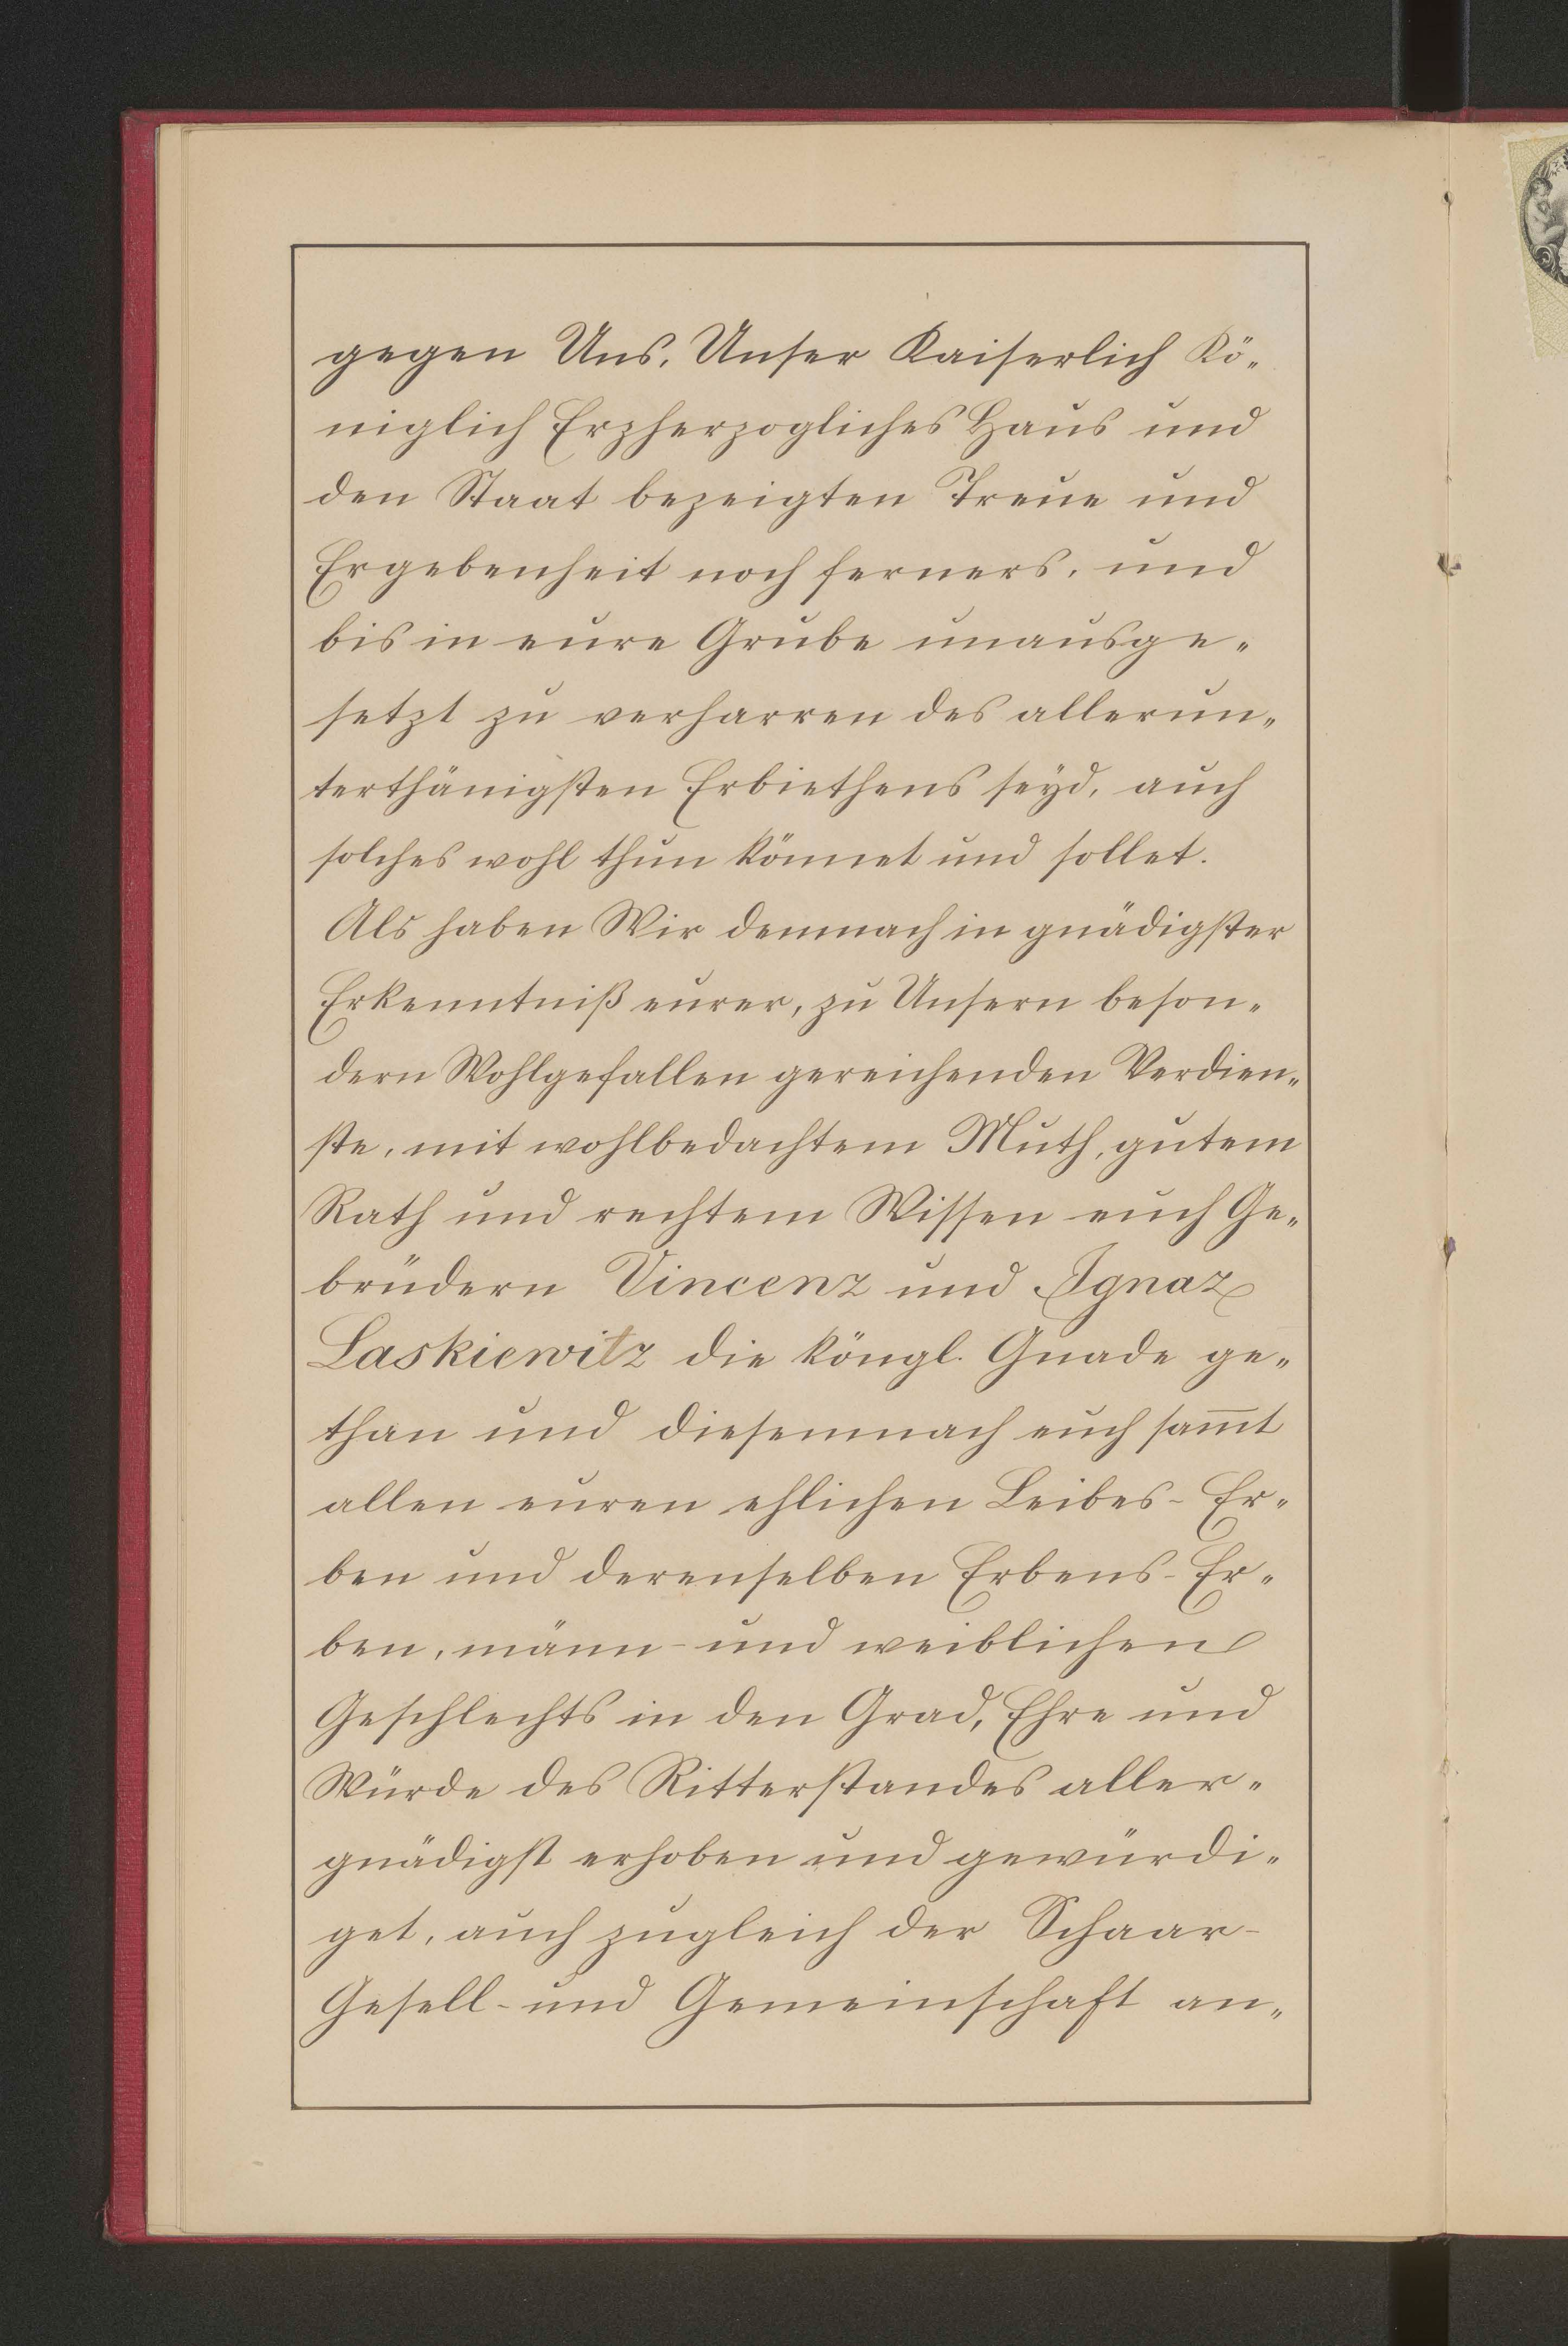 gegen Uns, Unser Kaiserlich Kö„
niglich Erzherzogliches Haus und
den Staat bezeigten Treue und
Ergebenheit noch ferners, und
bis in eure Grube unausge„
setzt zu verharren des allerun„
terthänigsten Erbiethens seÿd, auch
solches wohl thun könnet und sollet.
Als haben Wir demnach in gnädigster
Erkenntniß eurer, zu Unsern beson„
dern Wohlgefallen gereichenden Verdien„
ste, mit wohlbedachtem Muth, gutem
Rath und rechtem Wissen euch Ge„
brüdern Vincenz und Ignaz
Laskiewitz die köngl. Gnade ge„
than und diesemnach euch sam̅t
allen euren ehlichen Leibes- Er„
ben und derenselben Erbens-Er„
ben, männ- und weiblichen
Geschlechts in den Grad, Ehre und
Würde des Ritterstandes aller„
gnädigst erhoben und gewürdi„
get, auch zugleich der Schaar-
Gesell- und Gemeinschaft an„